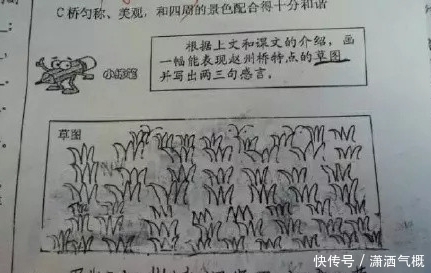 C桥匀称、美观，和四周的景色配合得十分和谐
根据上文和课文的介绍，画
一幅能表现赵州桥特点的草图
并写出两三句感言。
小练笔
草图
快传号／潇洒气概